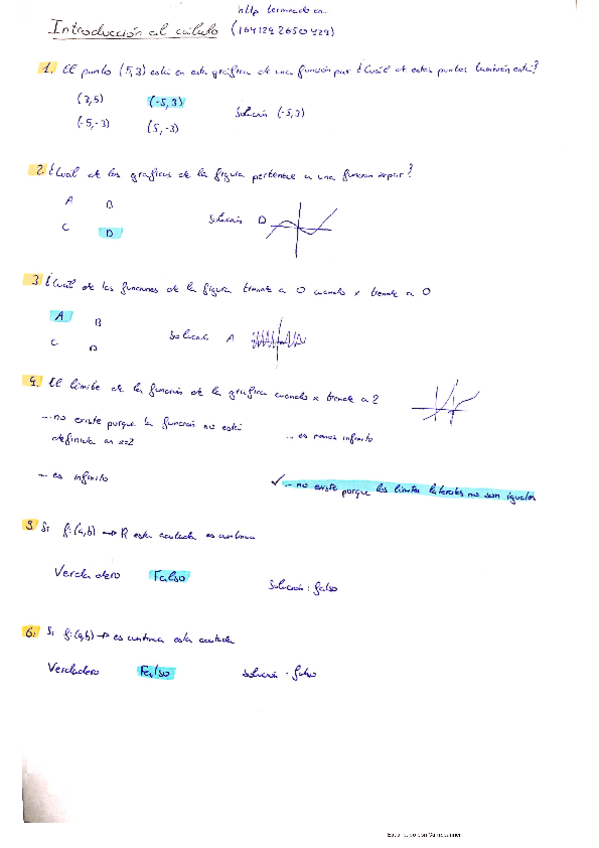 http terminado en...
Introducción al cálculo (1641292650429)
1. El punto (5,3) está en esta gráfica de una función par ¿Cuál de estos puntos también está?
(3,5) (-5,3) Solución (-5,3)
(-5,-3) (5,-3)
2. ¿Cuál de las graficas de la figura pertenece a una funcion impar?
A B
C D Solución D
3 ¿Cuál de las funciones de la figura tiende a 0 cuando x tiende a 0
A B
C D Solución A
4. El límite de la función de la grafica cuando x tiende a 2
...no existe porque la función no está
definida en x=2
... es menos infinito
... es infinito
✓... no existe porque los límites laterales no son iguales
5 Si f:(a,b) → R esta acotada es continua
Verdadero Falso Solución: falso
6. Si f:(a,b) → es continua esta acotada
Verdadero Falso Solución: falso
Escaneado con CamScanner